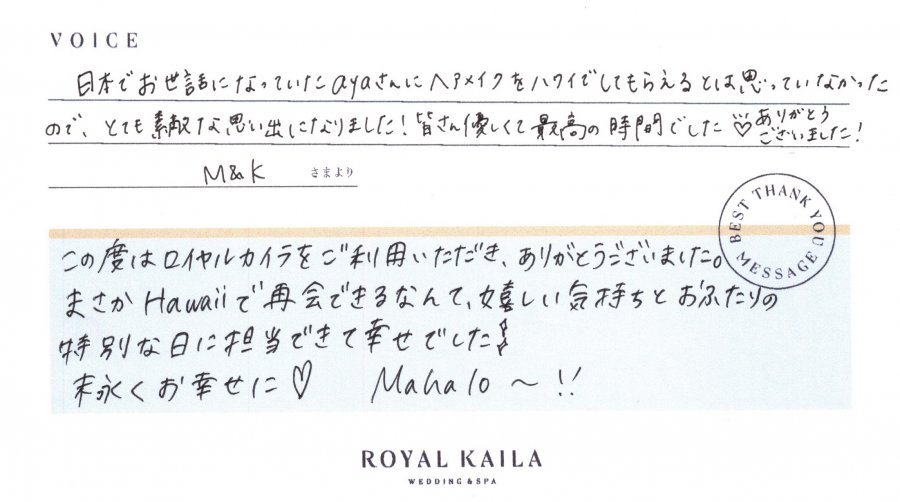 VOICE
日本でお世話になっていたayaさんにヘアメイクをハワイでしてもらえるとは思っていなかった
ので、とても素敵な思い出になりました！皆さん優しくて最高の時間でした♡ありがとう
ございました！
M&K さまより
BEST THANK YOU MESSAGE
この度はロイヤルカイラをご利用いただき、ありがとうございました。
まさかHawaiiで再会できるなんて、嬉しい気持ちとおふたりの
特別な日に担当できて幸せでした!
末永くお幸せに♡ Mahalo〜!!
ROYAL KAILA
WEDDING & SPA